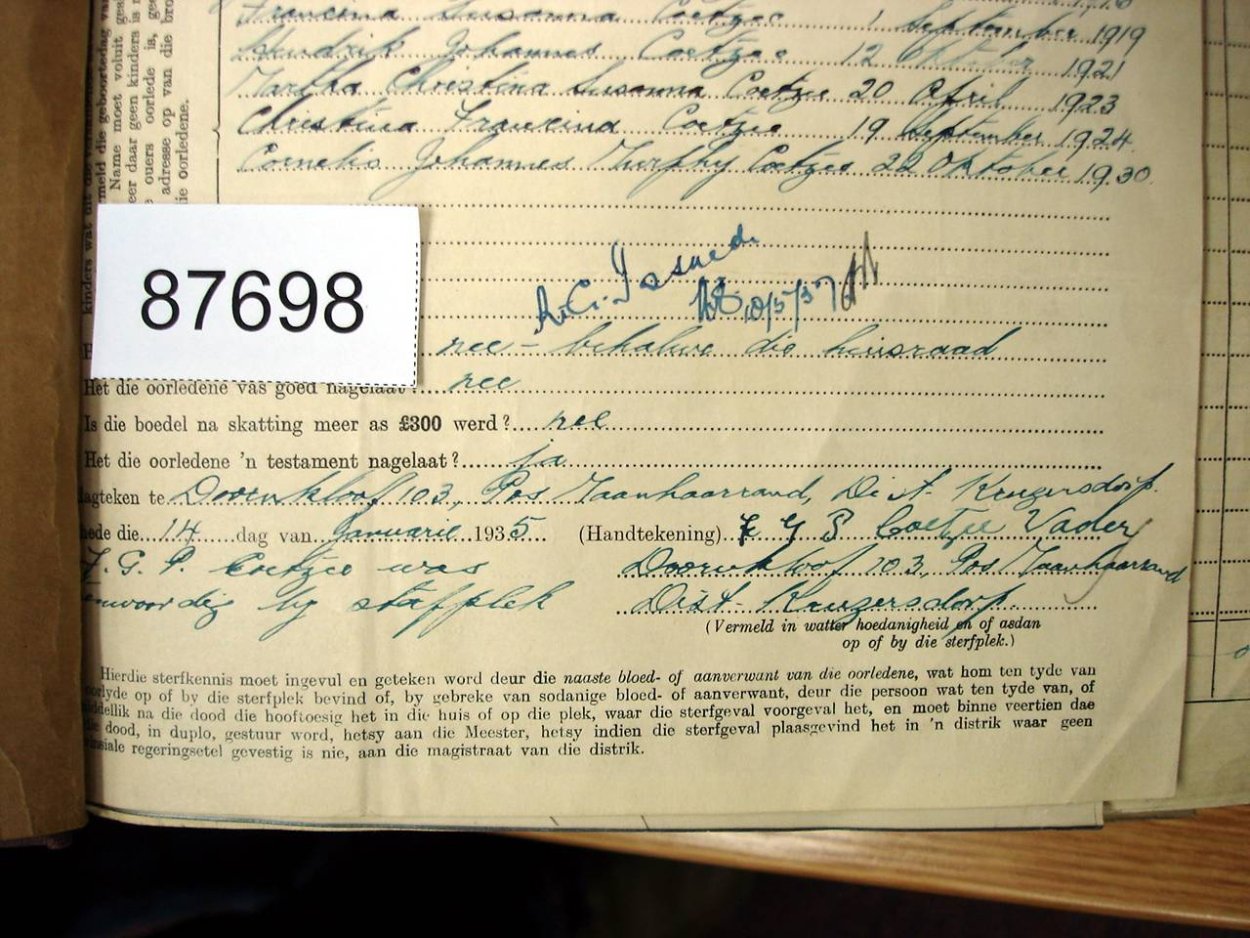 Francina Susanna Coetzee 1 September 1919
Hendrik Johannes Coetzee 12 Oktober 1921
Martha Christina Susanna Coetzee 20 April 1923
Christina Francina Coetzee 19 September 1924
Cornelis Johannes Murphy Coetzee 22 Oktober 1930
87698
10/5/37
nee - behalwe die huisraad
Het die oorledene vas goed nagelaat? nee
Is die boedel na skatting meer as £300 werd? nee
Het die oorledene 'n testament nagelaat? ja
agteken te Doornkloof 103, Pos Maanhaarrand, Dist. Krugersdorp.
hede die 14 dag van Januarie 1935 (Handtekening) J G P Coetzee Vader
J. G. P. Coetzee was Doornkloof 103, Pos Maanhaarrand
enwoordig by stafplek Dist. Krugersdorp.
(Vermeld in watter hoedanigheid en of asdan
op of by die sterfplek.)
Hierdie sterfkennis moet ingevul en geteken word deur die naaste bloed- of aanverwant van die oorledene, wat hom ten tyde van
oorlyde op of by die sterfplek bevind of, by gebreke van sodanige bloed- of aanverwant, deur die persoon wat ten tyde van, of
middellik na die dood die hooftoesig het in die huis of op die plek, waar die sterfgeval voorgeval het, en moet binne veertien dae
die dood, in duplo, gestuur word, hetsy aan die Meester, hetsy indien die sterfgeval plaasgevind het in 'n distrik waar geen
nsiale regeringsetel gevestig is nie, aan die magistraat van die distrik.